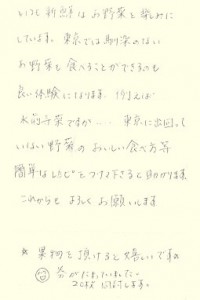 いつも新鮮なお野菜を楽しみに
しています。東京では馴染のない
お野菜を食べることができるのも
良い体験になります。例えば
水前寺菜ですが‥ 東京に出回って
いない野菜のおいしい食べ方等
簡単なレシピをつけて下さると助かります
これからもよろしくお願いします
* 果物を頂けると嬉しいですね
が入っていました。